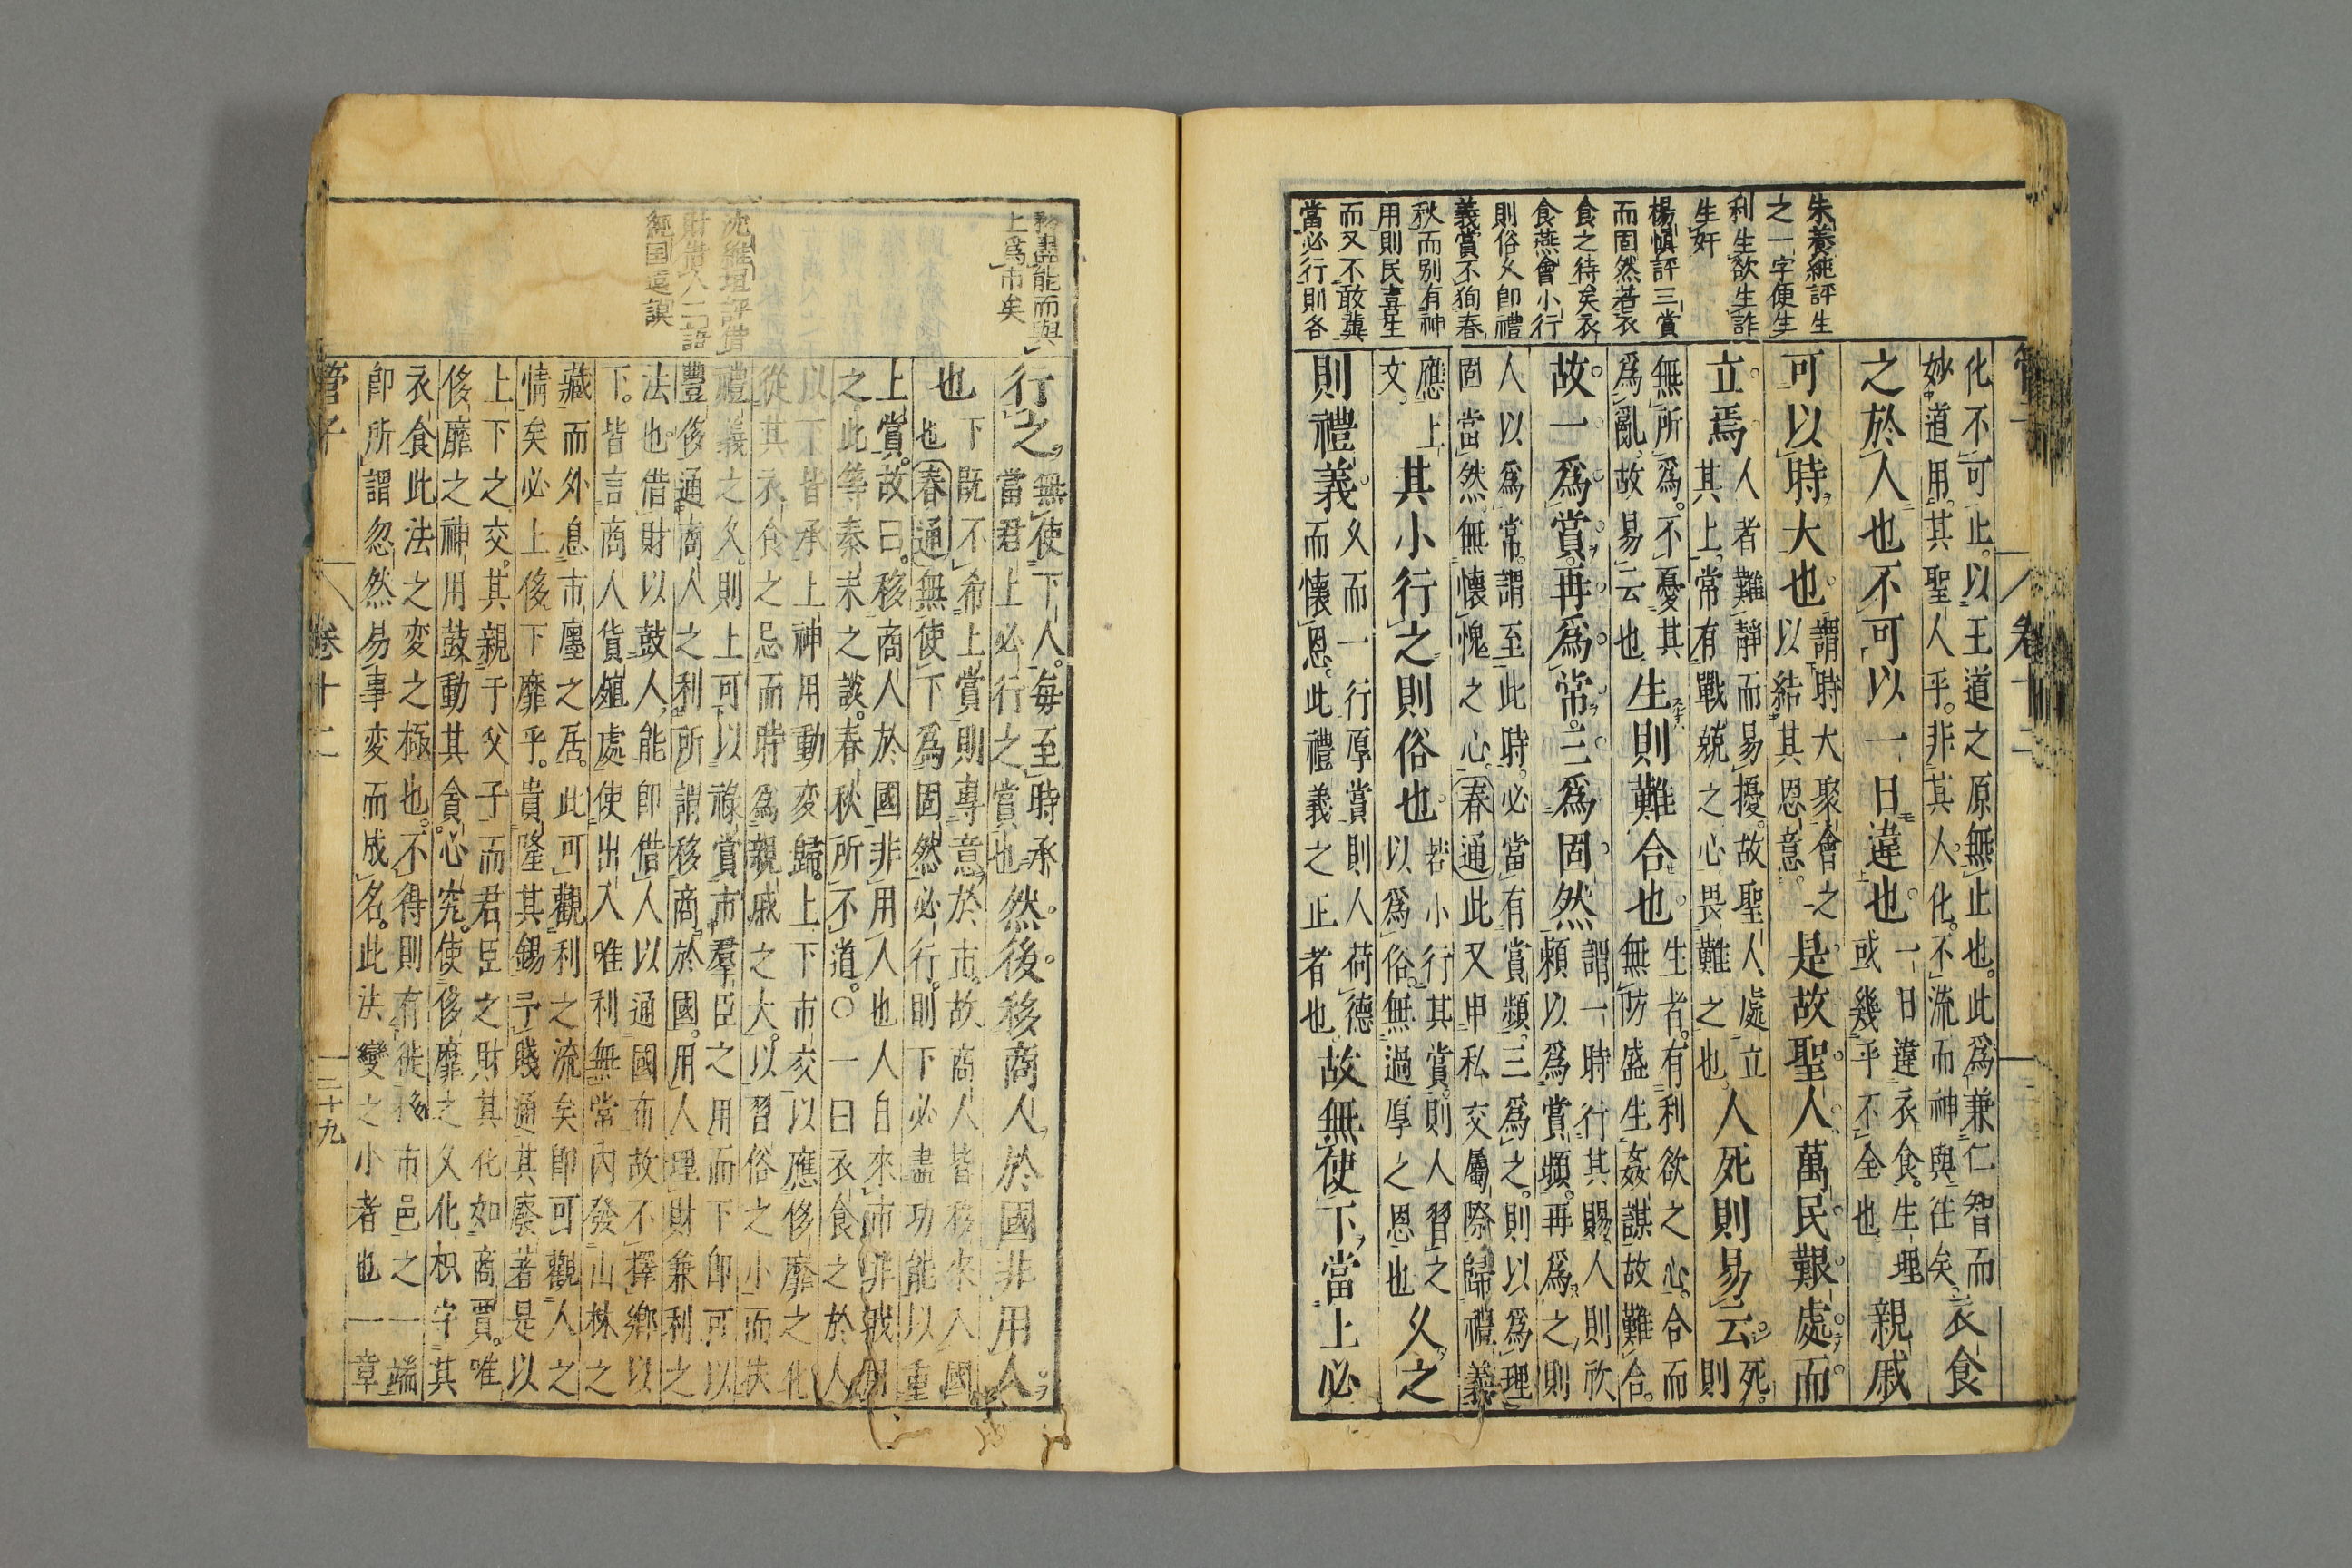 朱養純評生
之一字便生
利生欲生詐
生奸
楊愼評三賞
而固然若衣
食之待矣衣
食燕會小行
則俗乆卽禮
義賞不狥春
秋而别有神
用則民喜生
而又不敢冀
當必行則各
化不可止以王道之原無止也此爲兼仁智而
妙道用其聖人乎非其人化不流而神與往矣
衣食
之於人也不可以一日違也
一日違衣食生理
或幾乎不全也
親戚
可以時大也
謂時大聚會之
以結其恩意
是故聖人萬民艱處而
立焉
人者難靜而易擾故聖人處立
其上常有戰兢之心畏難之也
人死則易云
死
則
無所爲不憂其
爲亂故易云也
生則難合也
生者有利欲之心合而
無防盛生姦謀故難合
故一爲賞再爲常三爲固然
謂一時行其賜人則欣
賴以爲賞頻再爲之則
人以爲常謂至此時必當有賞頻三爲之則以爲理
固當然無懷愧之心春通此又申私交屬際歸禮義
應上
文
其小行之則俗也
若小行其賞則人習之
以爲俗無過厚之恩也
乆之
則禮義
乆而一行厚賞則人荷德
而懷恩此禮義之正者也
故無使下當上必
務盡能而與
上爲市矣
沈維垣評借
財借人二語
經国遠謨
行之
無使下人每至時承
當君上必行之賞也
然後移商人於國非用人
也
下既不希上賞則專意於市故商人皆移來入國
也春通無使下爲固然必行則下必盡功能以重
上賞故曰移商人於國非用人也人自來市非戰國
之此等秦未之談春秋所不道○一曰衣食之於人
以下皆承上神用動変歸上下市交以應侈靡之化
從其衣食之忌而時爲親戚之大以習俗之小而夾
禮義之乆則上可以祿賞市羣臣之用而下卽可以
豐侈通商人之利所謂移商於國用人理財兼利之
法也借財以鼓人能卽借人以通國布故不擇鄉以
下皆言商人貨殖處使出入唯利無常內發山林之
藏而外息市廛之居此可觀利之流矣卽可觀人之
情矣必上侈下靡乎貴隆其錫予賤通其廢著是以
上下之交其親于父子而君臣之財其化如商賈唯
侈靡之神用鼓動其貪心究使侈靡之乆化枳字其
衣食此法之変之極也不得則有徙移市邑之一端
卽所謂忽然易事変而成名此法變之小者也一章
管子
卷十二
三十九